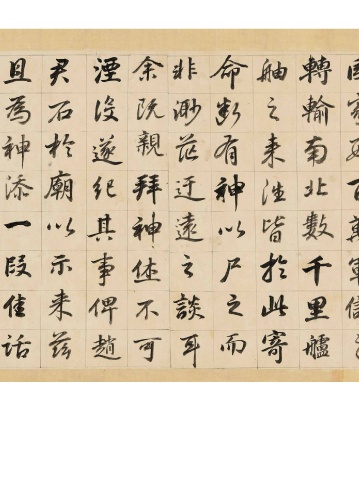 國家百萬軍
轉輸南北數千里艫
舳之來往皆於此寄
命斯有神以尸之而
非渺茫迂遠之談耳
余既親拜神庥不可
湮沒遂紀其事俾趙
君石於廟以示來茲
且為神添一段佳話